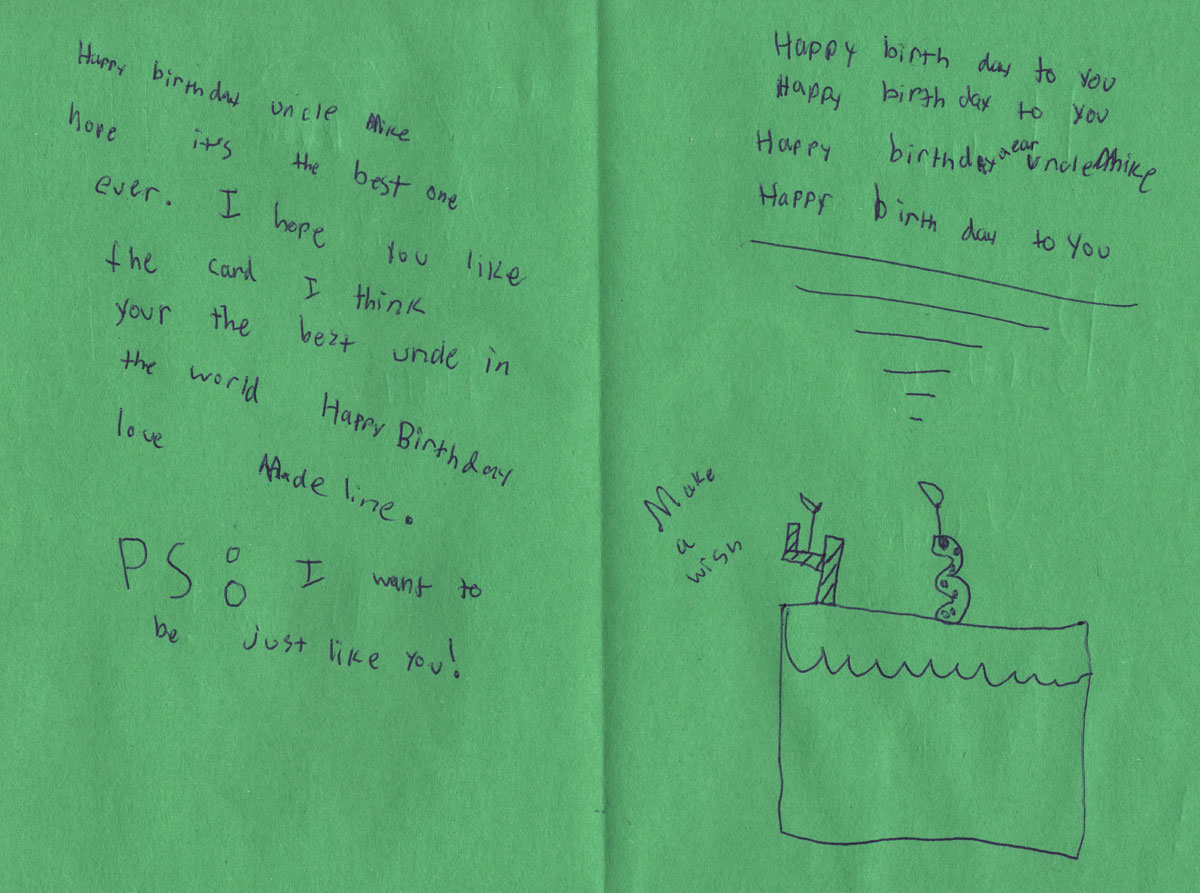 Happy birthday uncle Mike
hope it's the best one
ever. I hope you like
the card I think
your the best uncle in
the world Happy Birthday
love Madeline.
PS: I want to
be just like you!
Happy birth day to you
Happy birth day to you
Happy birthday dear uncle Mike
Happy birth day to you
Make
a
wish
43